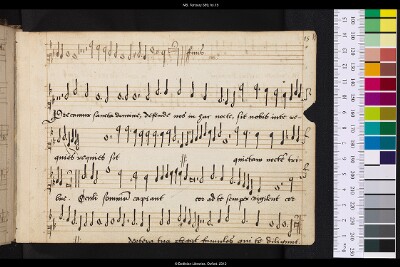 finis
Precamur sancta domine, defende nos in hac nocte, sit nobis inte re-
quies requies sit quietam noctem tri-
bue. Oculi somnum capiant cor ad te semper vigilent cor
dextera tua protegat famulos qui te diligunt.
© Bodleian Libraries, Oxford 2012